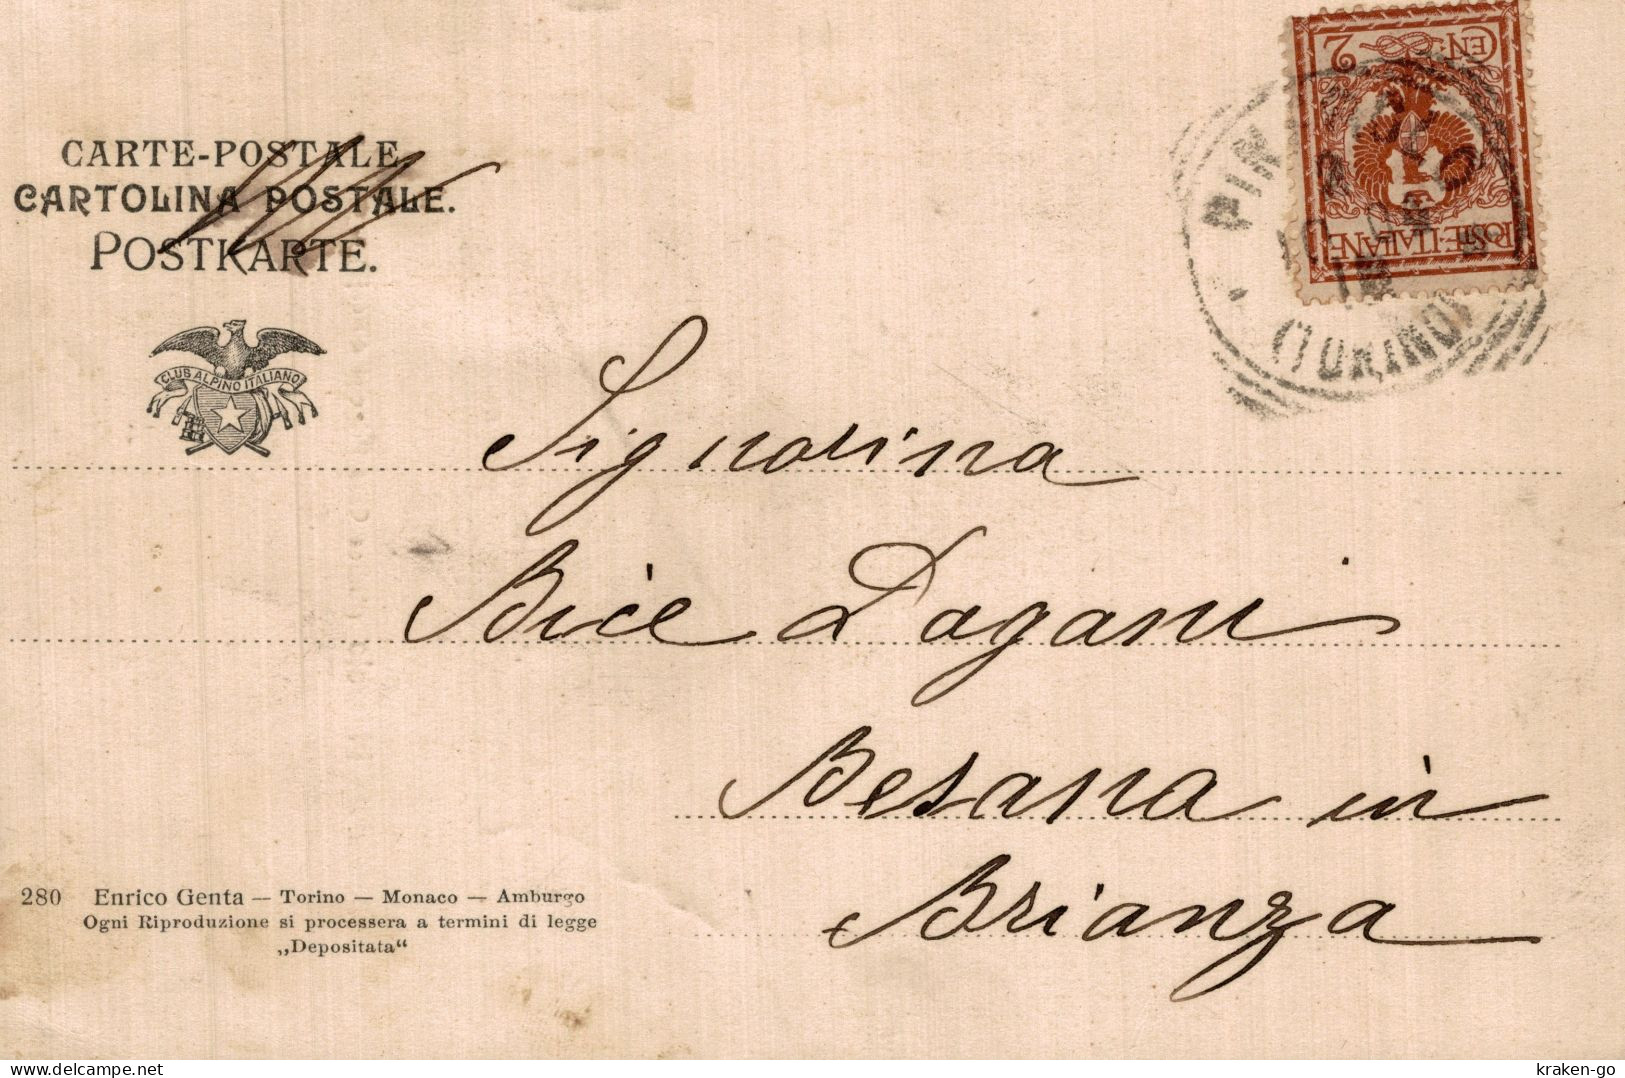 CARTE-POSTALE.
CARTOLINA POSTALE.
POSTKARTE.
CLUB ALPINO ITALIANO
CEN: 2
POSTE·ITALIANE
(TORINO)
Signorina
Bice Dagani
Besana in
Brianza
280 Enrico Genta — Torino — Monaco — Amburgo
Ogni Riproduzione si processera a termini di legge
„Depositata“
kraken-go